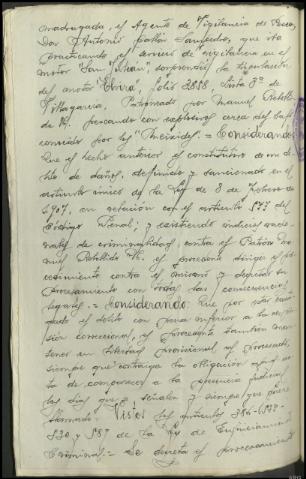 madrugada, el Agente de Vigilancia de Pesca,
Don Antonio Sampedro, que iba
practicando el servicio de vigilancia en el
motor "San", sorprendió la tripulación
del motor, folio 2888, lista 3ª de
Villagarcía, Patroneado por Manuel
pescando con explosivos cerca del bajo
conocido por los. = Considerando:
Que el hecho anterior es constitutivo de un de
lito de daños, definido y sancionado en el
artículo único de la Ley de 8 de de
1907, en relación con el artículo del
Código Penal; y existiendo indicios racio
nales de criminalidad contra el Patrón Ma
nuel es procedente dirigir el pro
cedimiento contra el y decretar su
procesamiento con todas las consecuencias
legales. = Considerando: Que por estar casti
gado el delito con pena inferior a la de pri
sión correccional, es procedente también man
tener en libertad provisional al procesado,
siempre que contraiga la obligación apud ac
ta de comparecer a la presencia judicial
los días que se señalen y siempre que fuere
llamado. Vistos los artículos 384-
530 y de la Ley de Enjuiciamiento
Criminal. = Se decreta el procesamiento